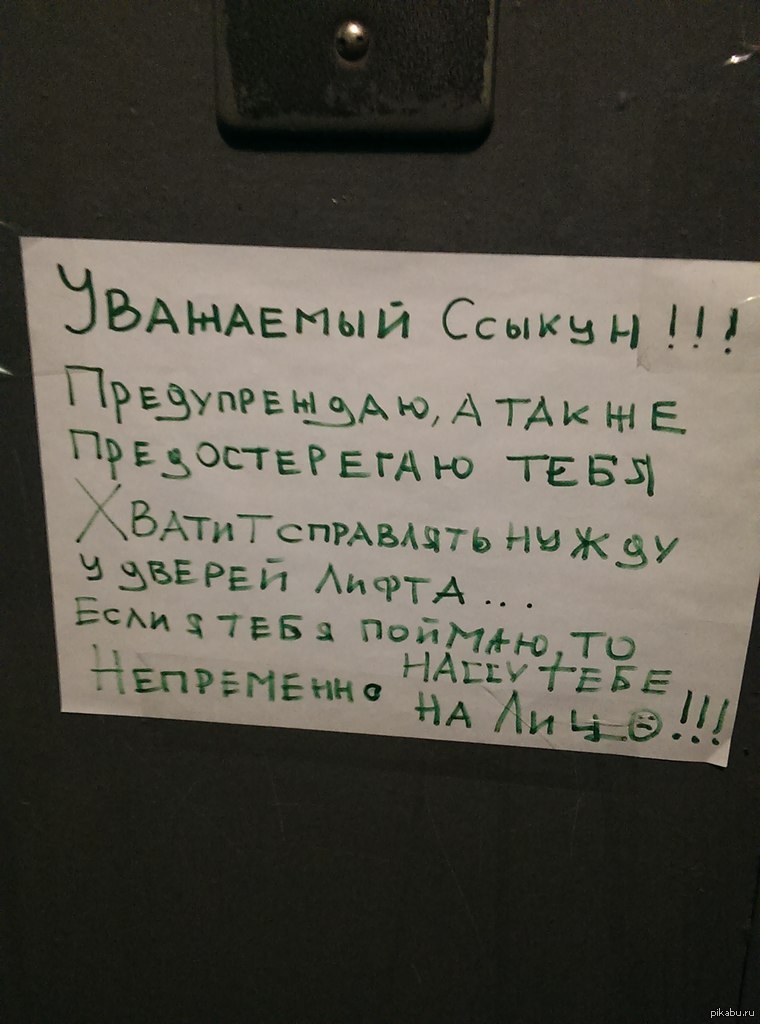 Уважаемый Ссыкун!!!
Предупреждаю, а также
предостерегаю тебя
Хватит справлять нужду
у дверей лифта...
Если я тебя поймаю, то
Непременно нассу тебе
на Лицо!!!
pikabu.ru